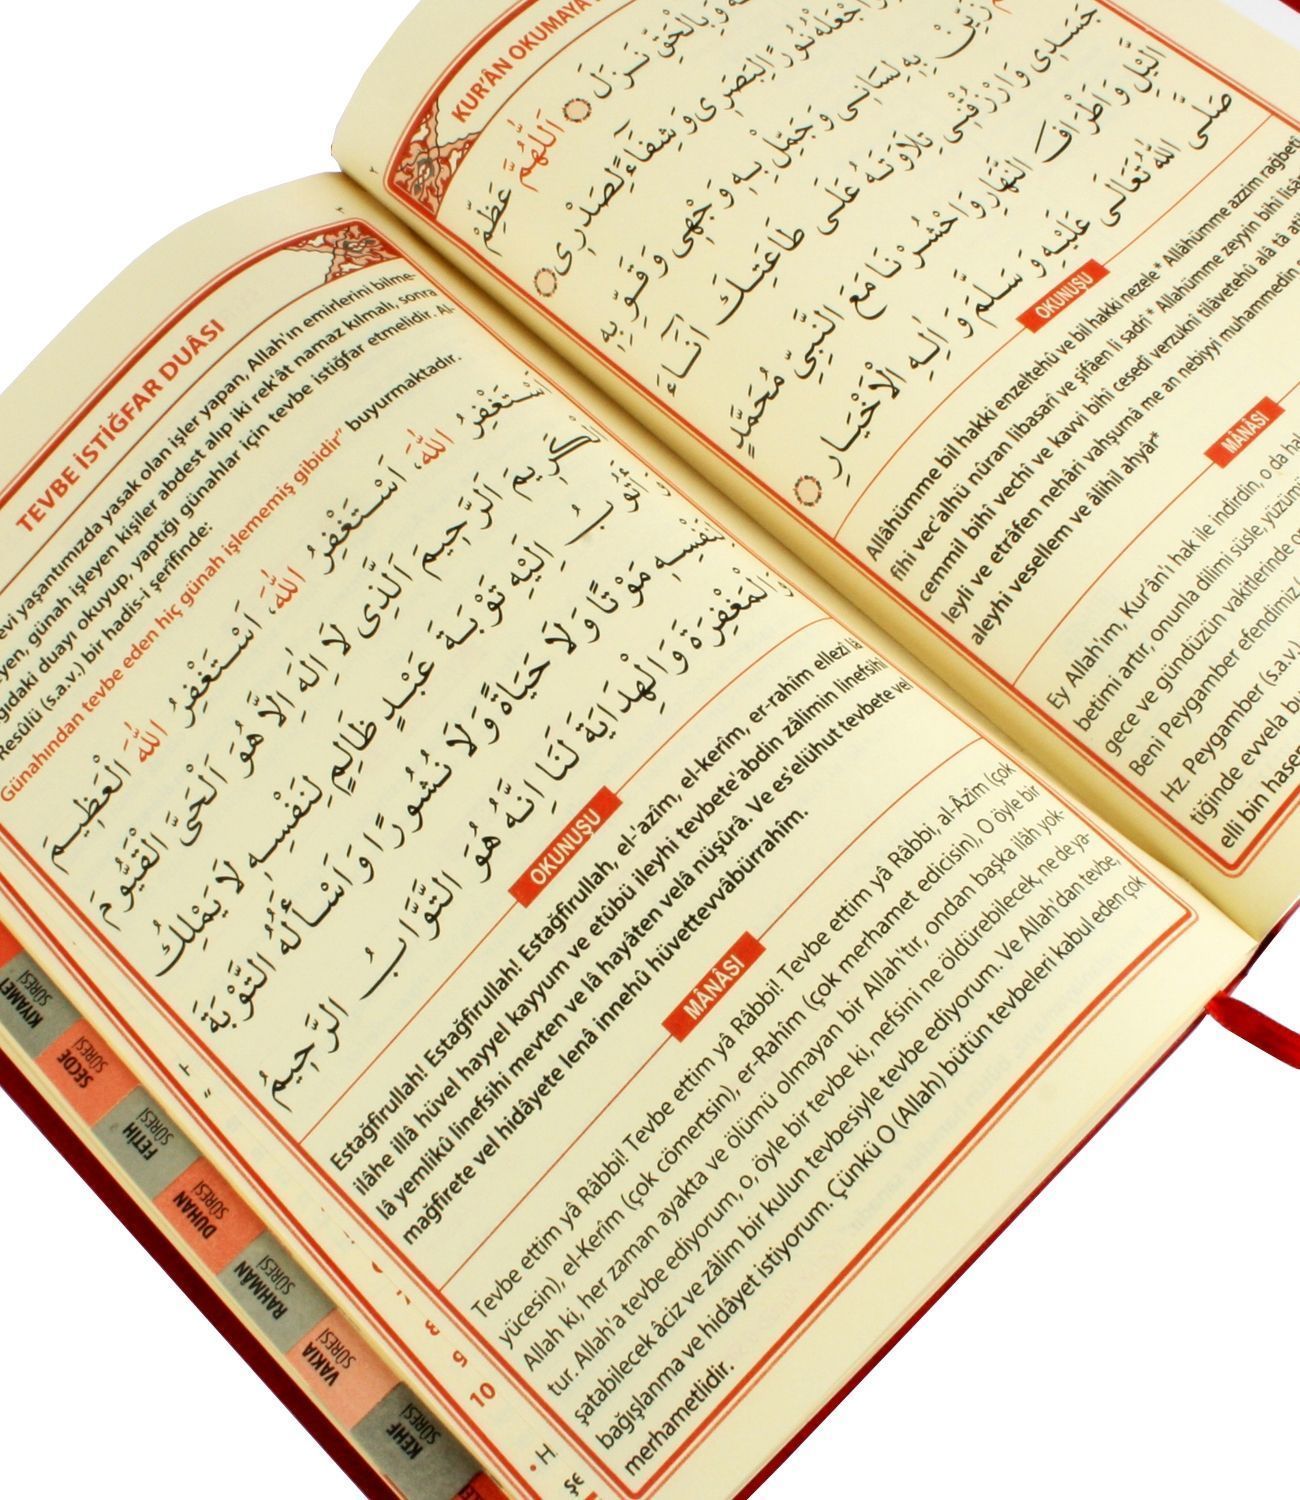 TEVBE İSTİĞFAR DUÂSI
evi yaşantımızda yasak olan işler yapan, Allah'ın emirlerini bilme-
yen, günah işleyen kişiler abdest alıp iki rek'ât namaz kılmalı, sonra
duayı okuyup, yaptığı günahlar için tevbe istiğfar etmelidir. Al-
Resûlü (s.a.v.) bir hadis-i şerifinde:
Günahından tevbe eden hiç günah işlememiş gibidir" buyurmaktadır.
اَسْتَغْفِرُ اللّٰهَ، اَسْتَغْفِرُ اللّٰهَ، اَسْتَغْفِرُ اللّٰهَ الْعَظِيمَ
الْكَرِيمَ اَلرَّحِيمَ اَلَّذِى لَا اِلٰهَ اِلَّا هُوَ الْحَىَّ الْقَيُّومَ
وَاَتُوبُ اِلَيْهِ تَوْبَةَ عَبْدٍ ظَالِمٍ لِنَفْسِهِ لَا يَمْلِكُ
لِنَفْسِهِ مَوْتًا وَلَا حَيَاةً وَلَا نُشُورًا وَاَسْأَلُهُ التَّوْبَةَ
وَالْمَغْفِرَةَ وَالْهِدَايَةَ لَنَا اِنَّهُ هُوَ التَّوَّابُ الرَّحِيمُ
OKUNUŞU
Estağfirullah! Estağfirullah! Estağfirullah, el-'azîm, el-kerîm, er-rahîm ellezî lâ
ilâhe illâ hüvel hayyel kayyum ve etûbü ileyhi tevbete'abdin zâlimin linefsihî
lâ yemlikû linefsihi mevten ve lâ hayâten velâ nüşûrâ. Ve es'elühut tevbete vel
mağfirete vel hidâyete lenâ innehû hüvettevvâbürrahîm.
MÂNÂSI
Tevbe ettim yâ Râbbi! Tevbe ettim yâ Râbbi! Tevbe ettim yâ Râbbi, al-Âzîm (çok
yücesin), el-Kerîm (çok cömertsin), er-Rahîm (çok merhamet edicisin), O öyle bir
Allah ki, her zaman ayakta ve ölümü olmayan bir Allah'tır, ondan başka ilâh yok-
tur. Allah'a tevbe ediyorum, o, öyle bir tevbe ki, nefsini ne öldürebilecek, ne de ya-
şatabilecek âciz ve zâlim bir kulun tevbesiyle tevbe ediyorum. Ve Allah'dan tevbe,
bağışlanma ve hidâyet istiyorum. Çünkü O (Allah) bütün tevbeleri kabul eden çok
merhametlidir.
KUR'ÂN OKUMAYA
وَبِالْحَقِّ نَزَلَ اَللّٰهُمَّ عَظِّمْ
وَاجْعَلْهُ نُورًا لِبَصَرِى وَشِفَاءً لِصَدْرِى
زَيِّنْ بِهِ لِسَانِى وَجَمِّلْ بِهِ وَجْهِى وَقَوِّ بِهِ
جَسَدِى وَارْزُقْنِى تِلَاوَتَهُ عَلَى طَاعَتِكَ اٰنَاءَ
الَّيْلِ وَاَطْرَافَ النَّهَارِ وَاحْشُرْنَا مَعَ النَّبِىِّ مُحَمَّدٍ
صَلَّى اللّٰهُ تَعَالَى عَلَيْهِ وَسَلَّمَ وَاٰلِهِ الْاَخْيَارِ
OKUNUŞU
Allâhümme bil hakki enzeltehû ve bil hakki nezele * Allâhümme azzim rağbetî
fîhi vec'alhü nûran libasarî ve şifâen li sadrî * Allahümme zeyyin bihi lisân
cemmil bihî vechi ve kavvi bihî cesedî verzuknî tilâvetehû alâ tâ
leyli ve etrâfen nehâri vahşurnâ me an nebiyyi muhammedin
aleyhi vesellem ve âlihil ahyâr*
MÂNÂSI
Ey Allah'ım, Kur'ân'ı hak ile indirdin, o da
betimi artır, onunla dilimi süsle, yüzümü
gece ve gündüzün vakitlerinde
Beni Peygamber efendimiz
Hz. Peygamber (s.a.v.)
tiğinde evvela
elli bin
KIYAMET SÛRESİ
SECDE SÛRESİ
FETİH SÛRESİ
DUHAN SÛRESİ
RAHMÂN SÛRESİ
VAKIA SÛRESİ
KEHF SÛRESİ
10